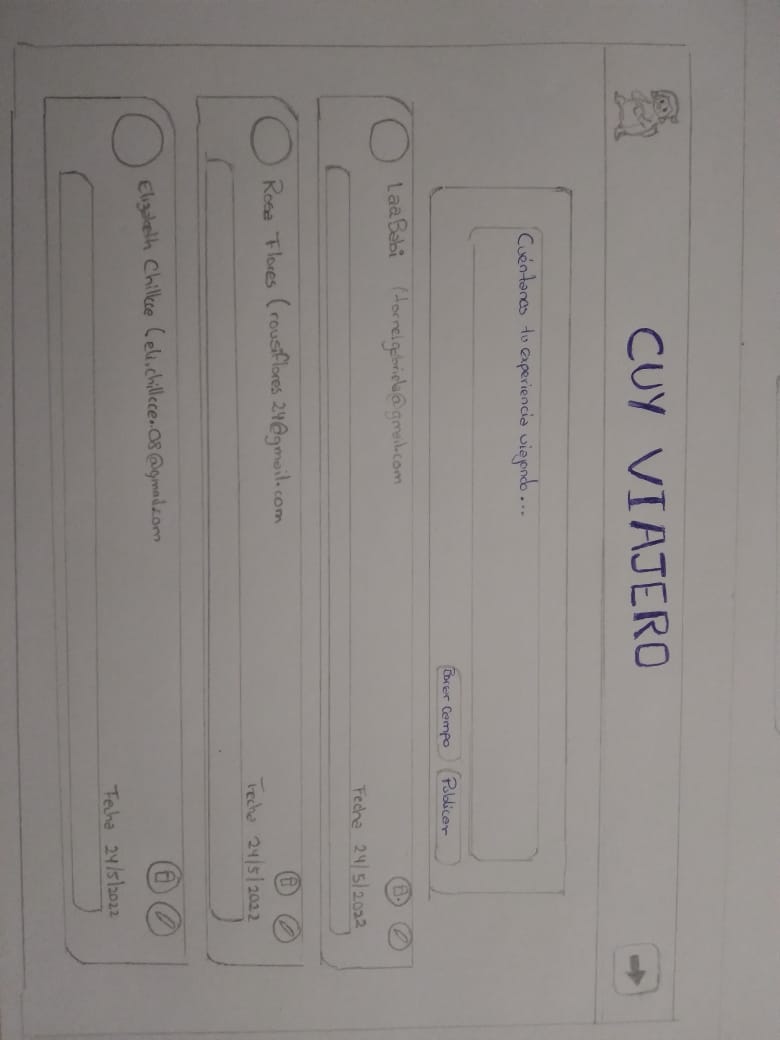 CUY VIAJERO
Cuéntanos tu experiencia viajando...
Borrar Campo
Publicar
Laa Bebi
Fecha 24/5/2022
Rosa Flores (rousiflores24@gmail.com
Fecha 24/5/2022
Elizabeth Chillcce (eli.chillcce.08@gmail.com
Fecha 24/5/2022